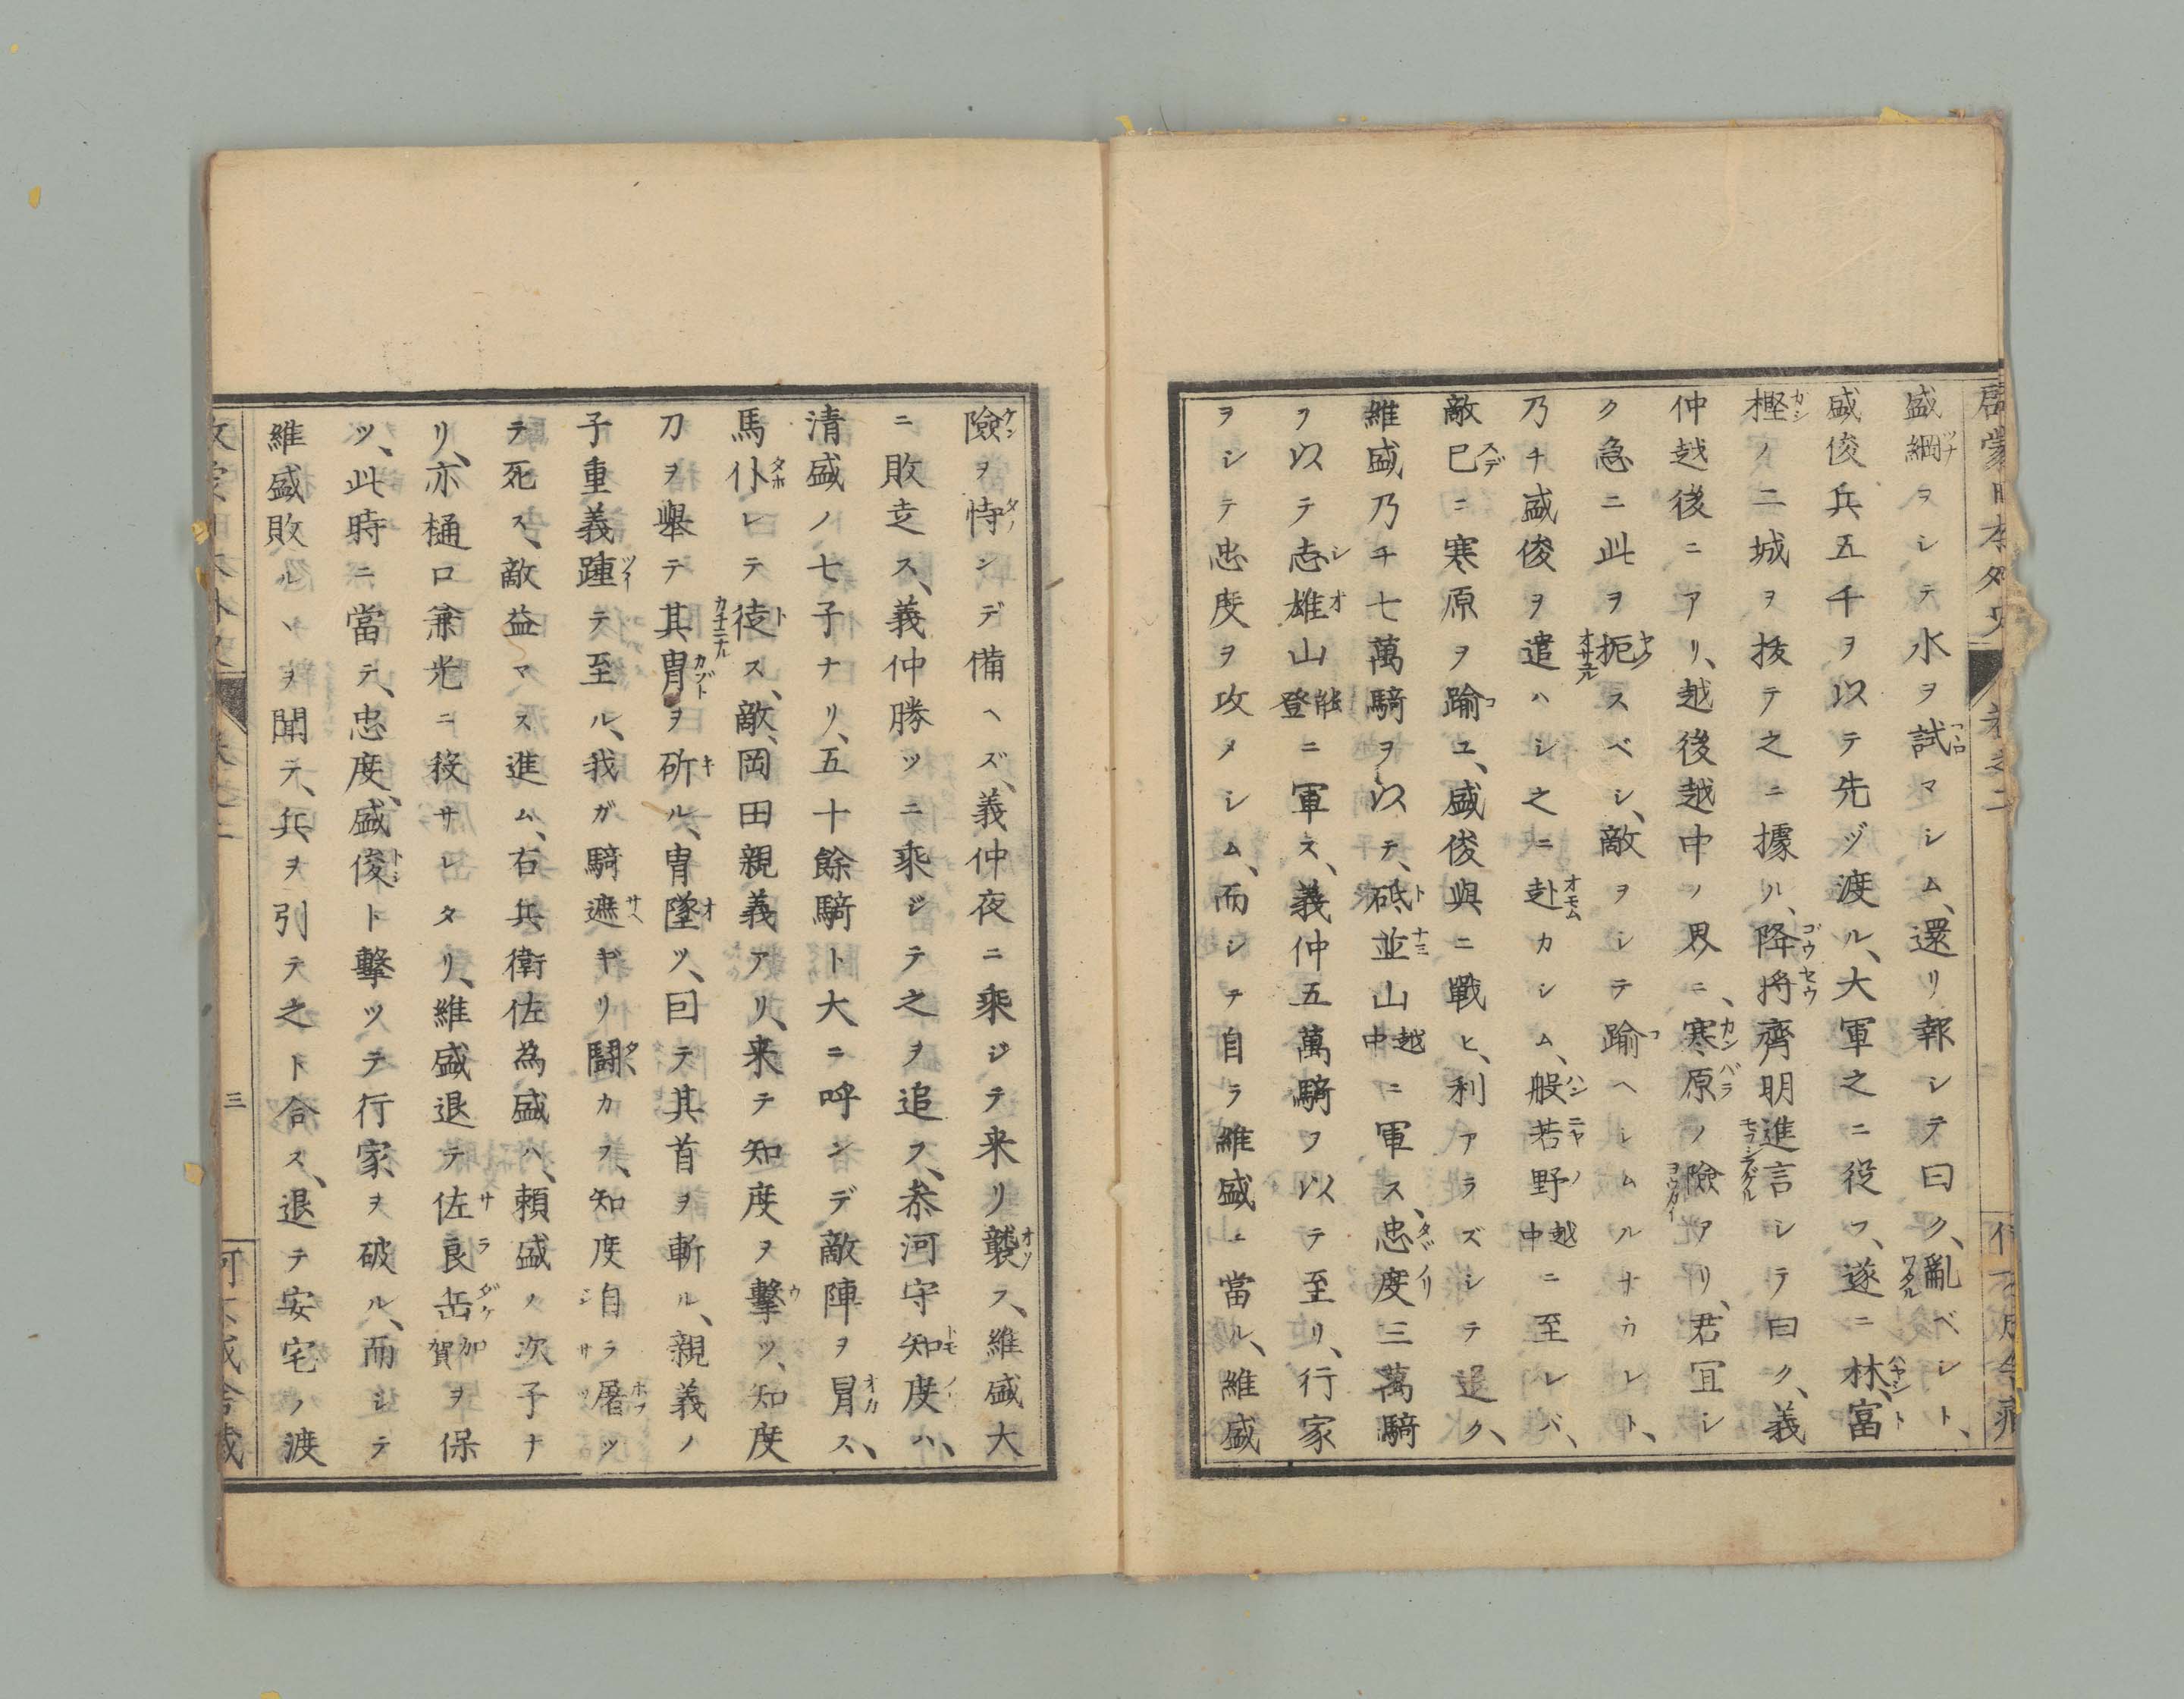 盛綱ヲシテ水ヲ試マシム、還リ報シテ曰ク、亂ベシト、
盛俊兵五千ヲ以テ先ヅ渡ル、大軍之ニ役フ、遂ニ林、富
樫ノ二城ヲ抜テ之ニ據ル、降将齊明進言シテ曰ク、義
仲越後ニアリ、越後越中ノ界ニ、寒原ノ險アリ、君宜シ
ク急ニ此ヲ扼スベシ、敵ヲシテ踰ヘシムルナカレト、
乃チ盛俊ヲ遣ハシ之ニ赴カシム、般若野越中ニ至レバ、
敵已ニ寒原ヲ踰ユ、盛俊與ニ戰ヒ、利アラズシテ退ク、
維盛乃チ七萬騎ヲ以テ、砥並山越中ニ軍ス、忠度三萬騎
ヲ以テ志雄山能登ニ軍ス、義仲五萬騎ヲ以テ至リ、行家
ヲシテ忠度ヲ攻メシム、而シテ自ラ維盛ニ當ル、維盛
險ヲ恃ンデ備ヘズ、義仲夜ニ乘ジテ来リ襲フ、維盛大
ニ敗走ス、義仲勝ツニ乘ジテ之ヲ追フ、参河守知度ハ、
清盛ノ七子ナリ、五十餘騎ト大ニ呼ンデ敵陣ヲ冒ス、
馬仆レテ徒ス、敵、岡田親義アリ、来テ知度ヲ擊ツ、知度
刀ヲ舉テ其冑ヲ斫ル、冑墜ツ、回テ其首ヲ斬ル、親義ノ
子重義踵テ至ル、我ガ騎遮ギリ鬪カフ、知度自ラ屠ツ
テ死ス、敵益マス進ム、右兵衛佐為盛ハ、頼盛ノ次子ナ
リ、亦樋口兼光ニ殺サレタリ、維盛退テ佐良岳加賀ヲ保
ツ、此時ニ當テ、忠度、盛俊ト擊ツテ行家ヲ破ル、而シテ
維盛敗ルヽヲ聞テ、兵ヲ引テ之ト合ス、退テ安宅ノ渡
三